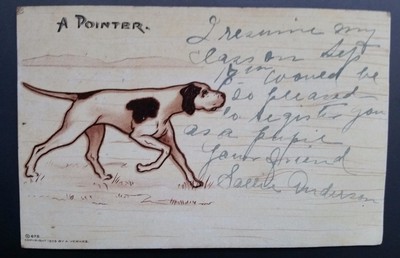 A POINTER.
I resume my
class on Sep
18th Would be
so pleased
to register you
as a pupil
Your friend
Sallie Anderson
COPYRIGHT